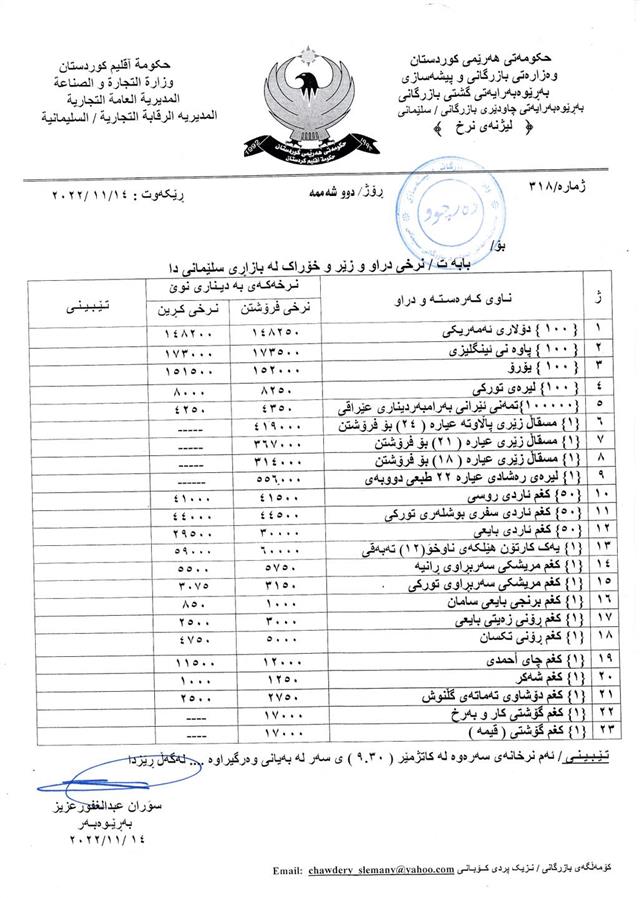 حکومەتی هەرێمی کوردستان
وەزارەتی بازرگانی و پیشەسازی
بەڕێوەبەرایەتی گشتی بازرگانی
بەڕێوەبەرایەتی چاودێری بازرگانی / سلێمانی
﴿ لیژنەی نرخ ﴾
حكومة أقليم كوردستان
وزارة التجارة و الصناعة
المديرية العامة التجارية
المديريه الرقابة التجارية / السليمانية
1992
حکومەتی هەرێمی کوردستان
حكومة أقليم كردستان
ژمارە/٣١٨
ڕۆژ/ دوو شەممە
ڕێکەوت : ١٤ /١١ /٢٠٢٢
دەرچوو
بۆ/
بابە ت / نرخی دراو و زێر و خۆراک لە بازاڕی سلێمانی دا
ژ ناوی کەرەستە و دراو نرخەکەی بە دیناری نوێ تێبینی
نرخی فرۆشتن نرخی کرین
١ {١٠٠} دۆلاری ئەمەریکی ١٤٨٢٥٠ ١٤٨٢٠٠
٢ {١٠٠} پاوە نی ئینگلیزی ١٧٣٥٠٠ ١٧٣٠٠٠
٣ {١٠٠} یۆرۆ ١٥٢٠٠٠ ١٥١٥٠٠
٤ {١٠٠} لیرەی تورکی ٨٢٥٠ ٨٠٠٠
٥ {١٠٠٠٠٠}تمەنی ئێرانی بەرامبەردیناری عێراقی ٤٣٥٠ ٤٢٥٠
٦ {١} مسقاڵ زێری پاڵاوتە عیارە ( ٢٤ ) بۆ فرۆشتن ٤١٩٠٠٠ -----
٧ {١} مسقاڵ زێری عیارە ( ٢١ ) بۆ فرۆشتن ٣٦٧٠٠٠ -----
٨ {١} مسقاڵ زێری عیارە ( ١٨ ) بۆ فرۆشتن ٣١٤٠٠٠ -----
٩ {١} لیرەی رەشادی عیارە ٢٢ طبعی دووبەی ٥٥٦٠٠٠ ------
١٠ {٥٠} کغم ئاردی روسی ٤١٥٠٠ ٤١٠٠٠
١١ {٥٠} کغم ئاردی سفری بوشلەری تورکی ٤٤٥٠٠ ٤٤٠٠٠
١٢ {٥٠} کغم ئاردی بایعی ٣٠٠٠٠ ٢٩٥٠٠
١٣ {١} یەک کارتۆن هێلکەی ناوخۆ(١٢) تەبەقی ٦٠٠٠٠ ٥٩٠٠٠
١٤ {١} کغم مریشکی سەربراوی ڕانیە ٥٧٥٠ ٥٥٠٠
١٥ {١} کغم مریشکی سەربراوی تورکی ٣١٥٠ ٣٠٧٥
١٦ {١} کغم برنجی بایعی سامان ١٠٠٠ ٨٥٠
١٧ {١} کغم ڕۆنی زەیتی بایعی ٣٠٠٠ ٢٥٠٠
١٨ {١} کغم ڕۆنی تکسان ٥٠٠٠ ٤٧٥٠
١٩ {١} کغم چای أحمدی ١٢٠٠٠ ١١٥٠٠
٢٠ {١} کغم شەکر ١٢٥٠ ١٠٠٠
٢١ {١} کغم دۆشاوی تەماتەی گڵنوش ٢٧٥٠ ٢٥٠٠
٢٢ {١} کغم گۆشتی کار و بەرخ ١٧٠٠٠ ----
٢٣ {١} کغم گۆشتی ( قیمە ) ١٧٠٠٠ ----
تێبینی/ ئەم نرخانەی سەرەوە لە کاتژمێر ( ٩.٣٠ ) ی سەر لە بەیانی وەرگیراوە .... لەگەڵ ڕێزدا
سۆران عبدالغفورعزیز
بەڕێوەبەر
١٤ /١١/٢٠٢٢
کۆمەڵگەی بازرگانی / نزیک پردی کۆبانی Email: chawdery_slemany@yahoo.com